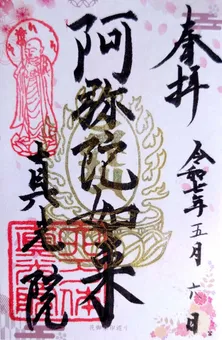 奉拝
令和七年五月六日
阿弥陀如来
真光院